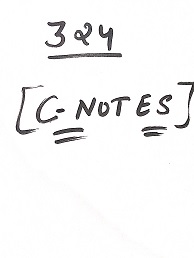 324
[C-NOTES]